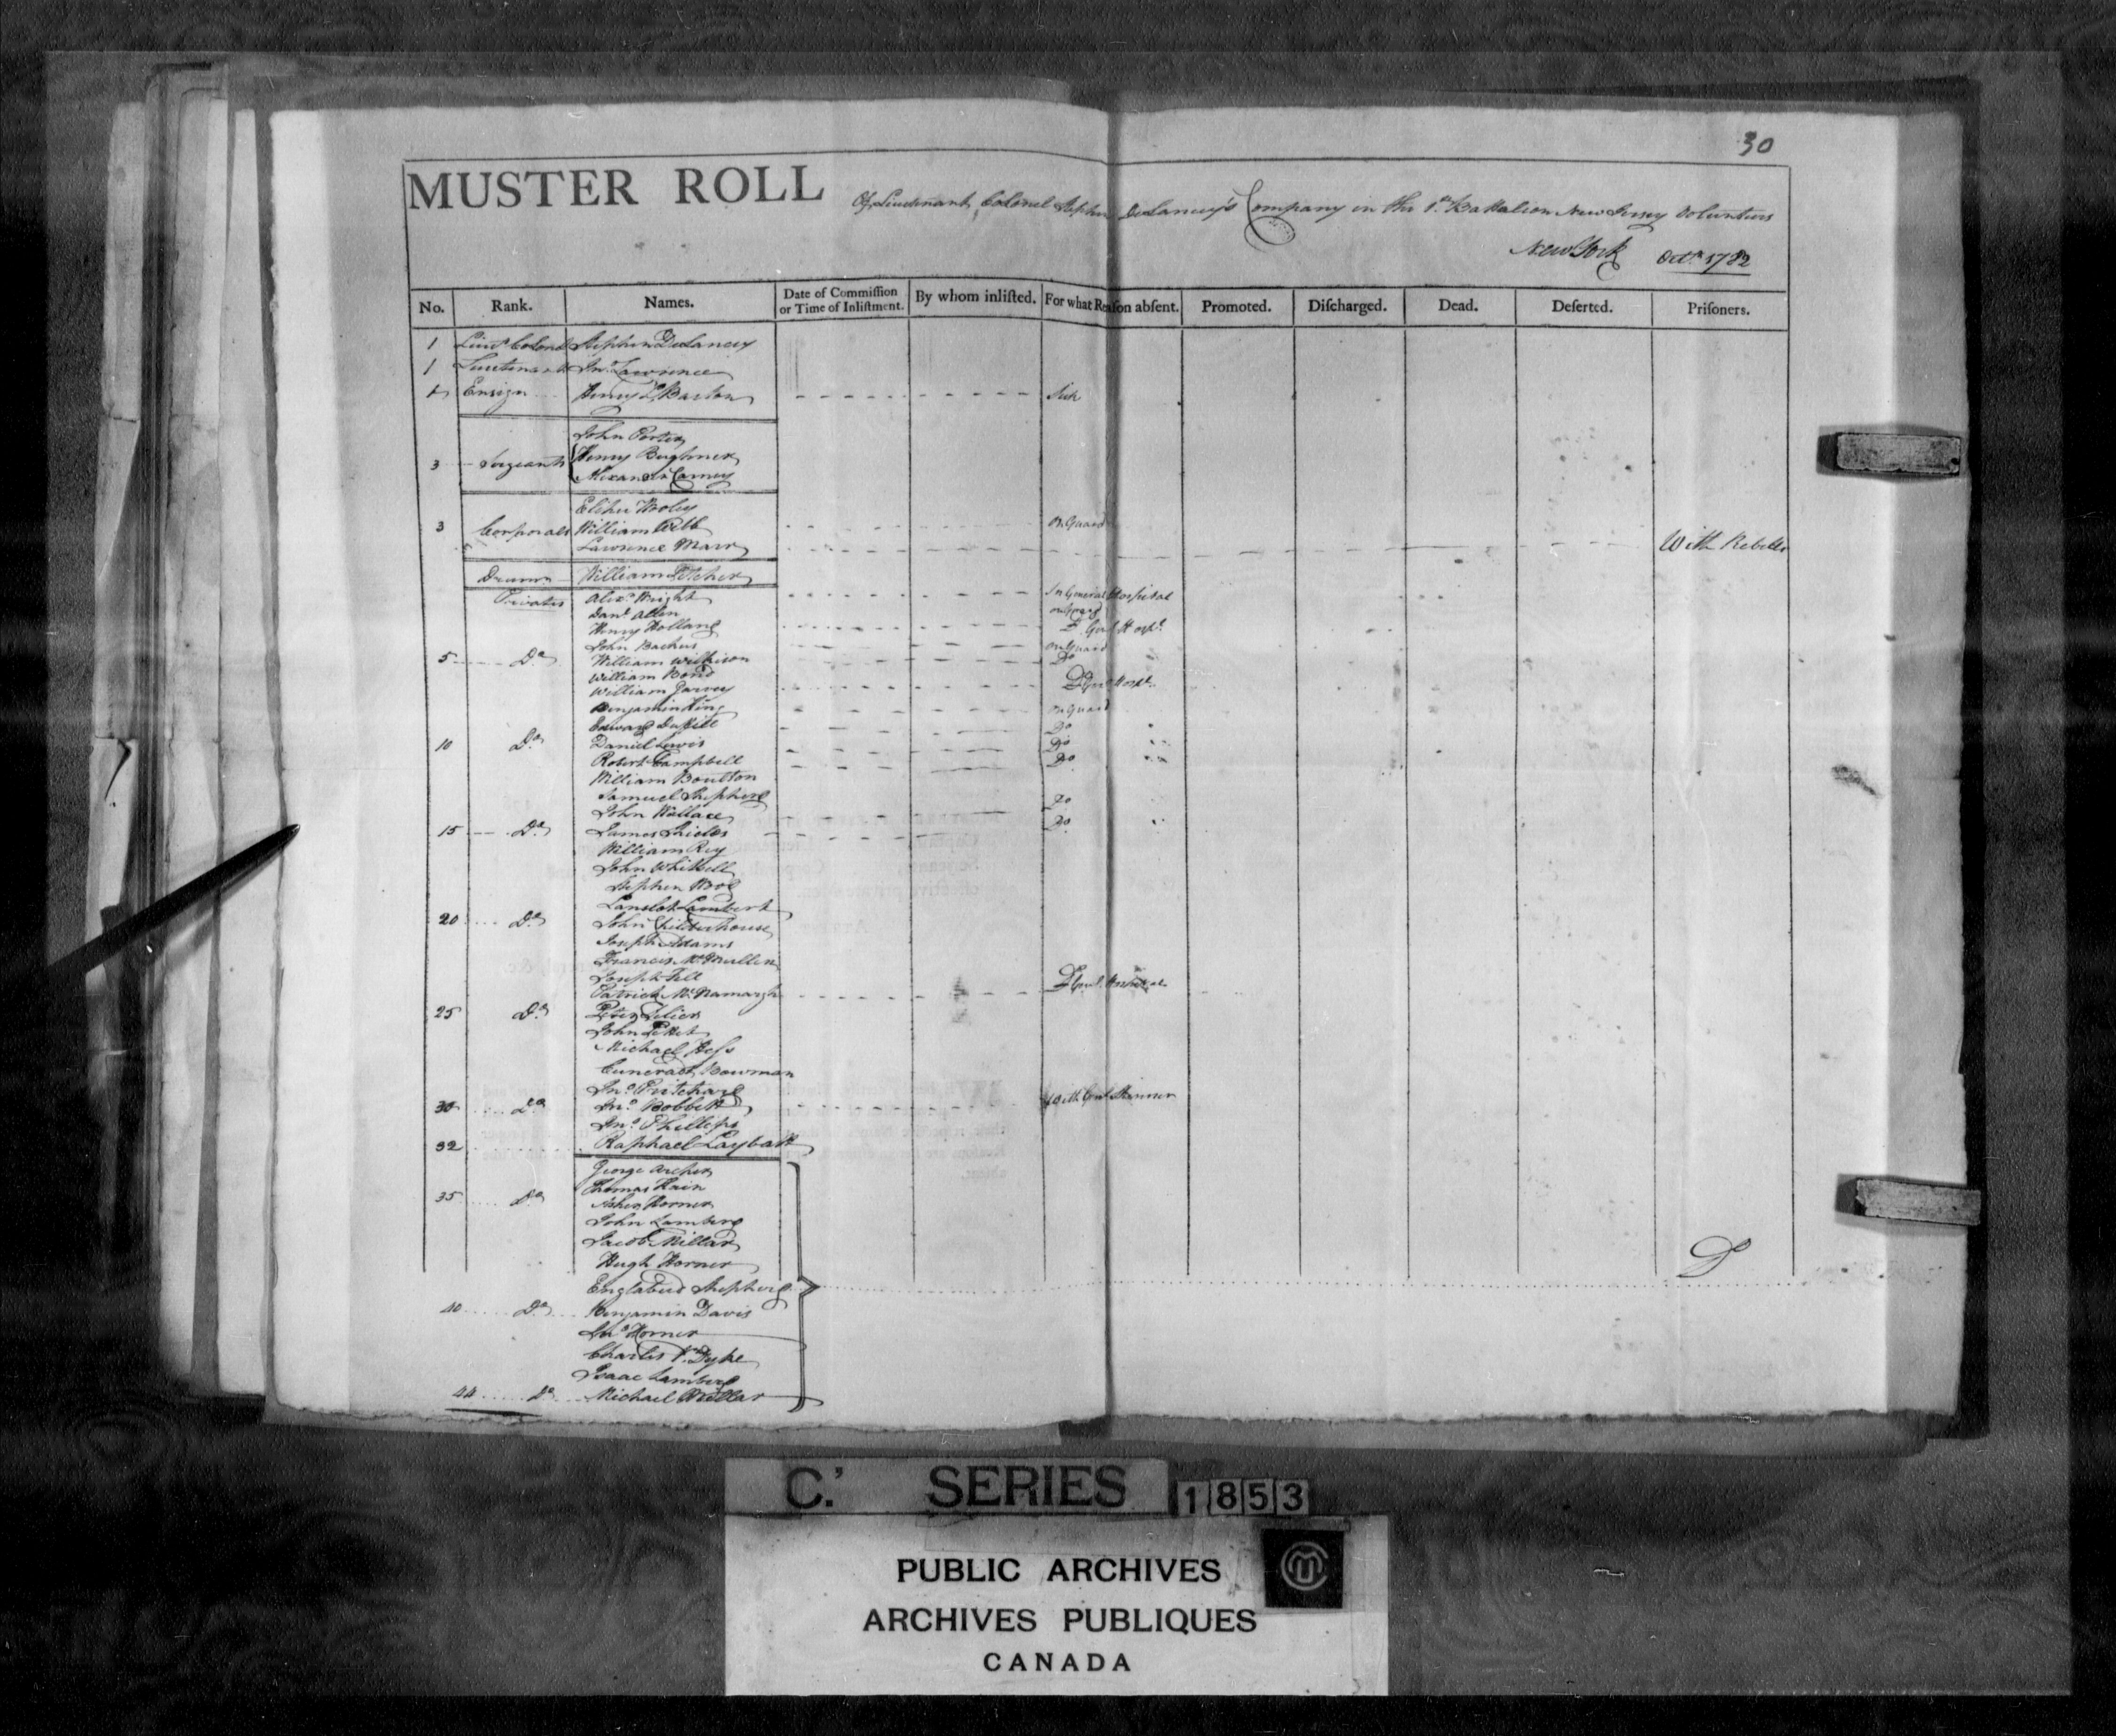 30
MUSTER ROLL Of Lieutenant Colonel Stephen DeLancey's Company in the 1st Battalion New Jersey Volunteers
New York Octr 1782
No. Rank. Names. Date of Commission or Time of Inlistment. By whom inlisted. For what Reason absent. Promoted. Discharged. Dead. Deserted. Prisoners.
1 Lieut Colonel Stephen DeLancey
1 Lieutenant Jno. Lawrence
1 Ensign Henry L. Barton Sick
John Porter
3 Sergeants Henry Bughner
Alexander Carney
Elihu Wooley
3 Corporals William Webb On Guard
Lawrence Marr With Rebells
Drumr William Fletcher
Privates Alexr. Wright In General Hospital
Danl. Allen on Guard
Henry Holland Do. Genl. Hospl.
John Backus on Guard
5 Do William Wilkison Do
William Bond
William Garvey Do Genl. Hospl.
Benjamin King on Guard
Edward DuKill Do
10 Do Daniel Lewis Do
Robert Campbell Do
William Boulton
Samuel Shepherd Do
John Wallace Do
15 Do James Shields
William Rey
John Whitsell
Stephen Wood
Lanslot Lambert
20 Do John Childerhouse
Joseph Adams
Francis McMullen
Joseph Fell
Patrick McNamargh Do Genl. Hospital
25 Do Peter
John Pettet
Michael Hess
Cunerad Bowman
Jno. Pritchard
30 Do Jno. Bobbett With Genl. Skinner
Jno. Phillips
32 Raphael Laybatt
George Archer
Thomas Kain
35 Do Asher Horner
John Lambers
Jacob Millar
Hugh Horner
Shepherd D
40 Do Benjamin Davis
Jno. Horner
Charles V. Dyke
Isaac Lambers
44 Do Michael Millar
C.' SERIES 1853
PUBLIC ARCHIVES
ARCHIVES PUBLIQUES
CANADA